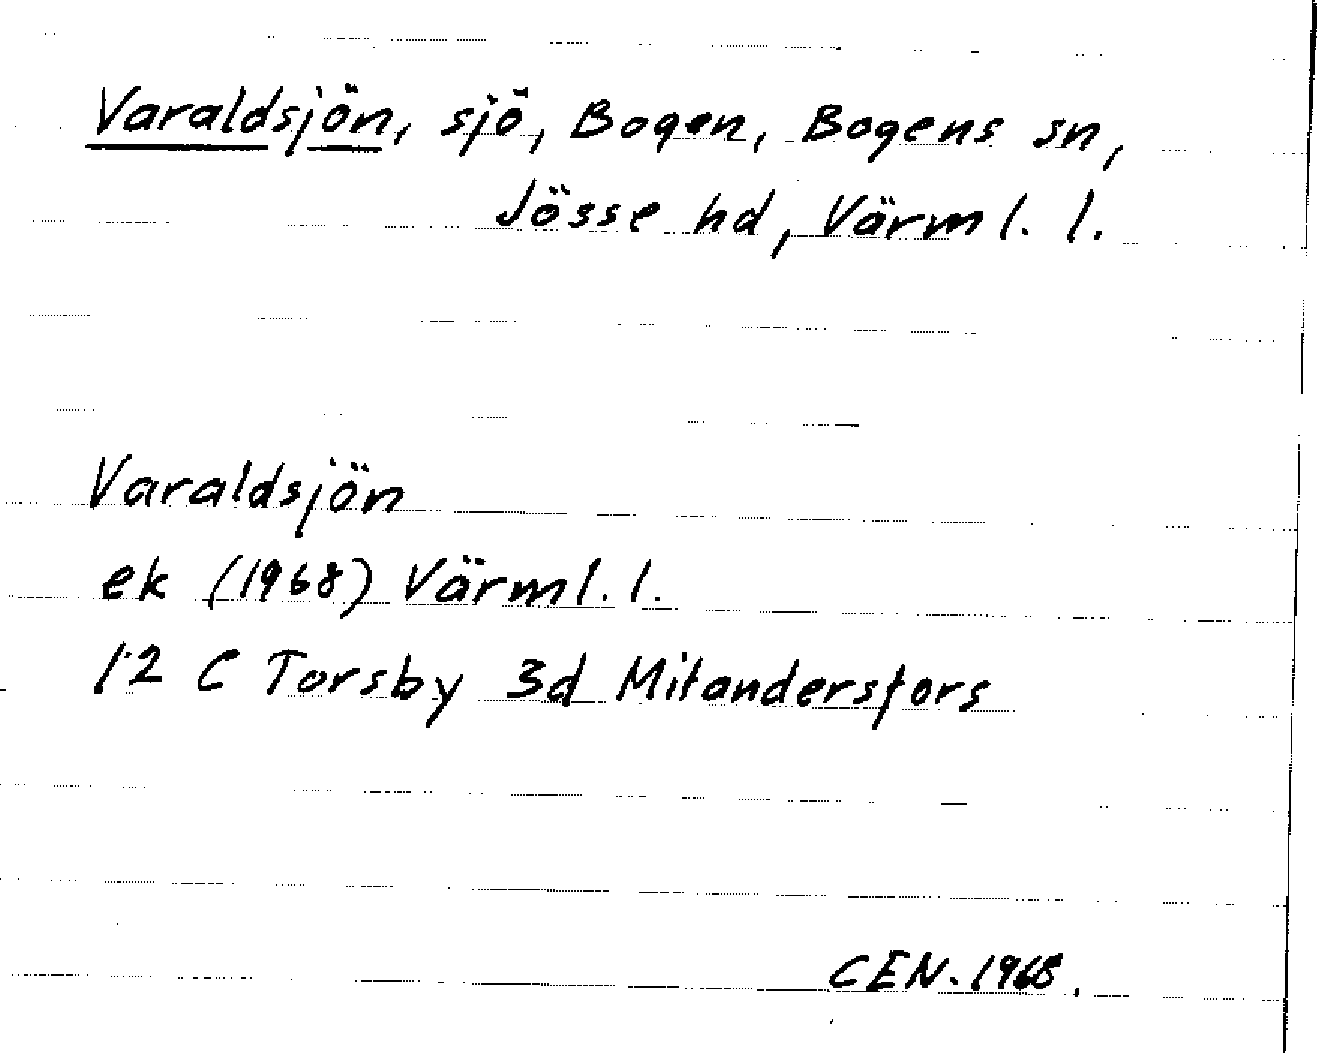 Varaldsjön, sjö, Bogen, Bogens sn,
Jösse hd, Värml. l.
Varaldsjön
ek (1968) Värml. l.
12 C Torsby 3d Mitandersfors
CEN. 1968.